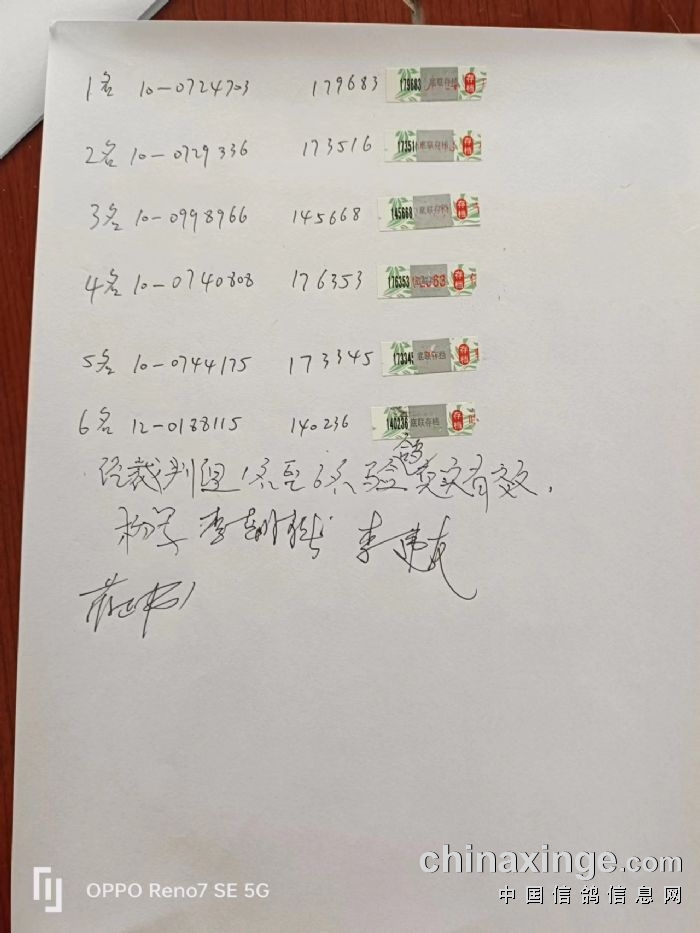 1名 10-0724703 179683 179683 底联存档 存档
2名 10-0729336 173516 17351 底联存档 存档
3名 10-0998966 145668 145668 底联存档 存档
4名 10-0740808 176353 176353 存档
5名 10-0744175 173345 17334 底联存档 存档
6名 12-0188115 140236 140236 底联存档 存档
经裁判组1名至6名验鸽真实有效.
李
chinaxinge.com
中国信鸽信息网
OPPO Reno7 SE 5G